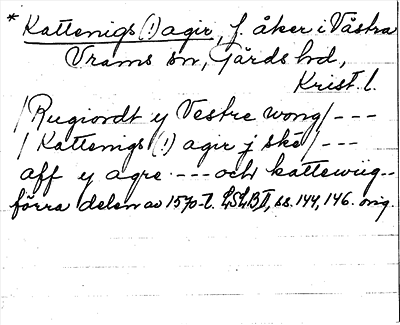 * Kattenigs (!) agir, f. åker i Västra
Vrams sn, Gärds hd,
Krist. l.
/Rugiordt y Vestre wong/ ---
/Kattenigs (!) agir j skě/ ---
aff y agre --- och kattewiig--
förra delen av 1570-t. LSLB II, ss. 144, 146. orig.